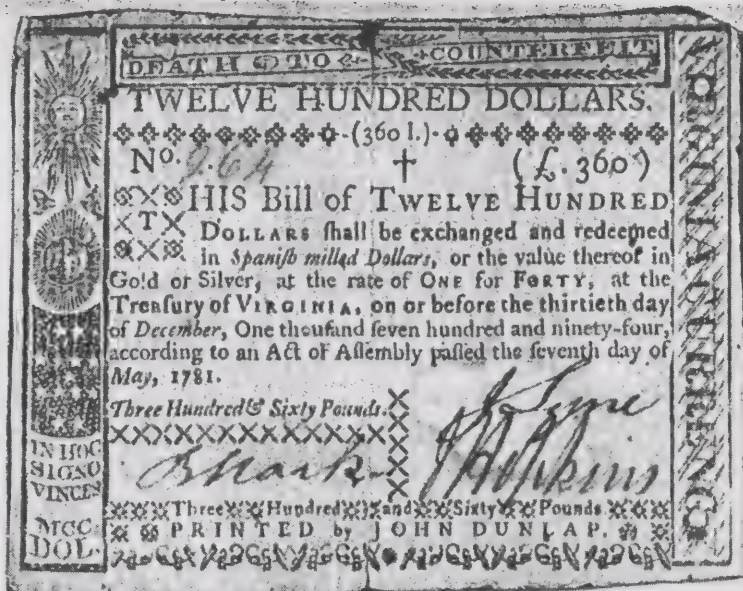 DEATH TO COUNTERFEIT
TWELVE HUNDRED DOLLARS.
(360 l.)
No. 964 (£. 360)
THIS Bill of TWELVE HUNDRED
DOLLARS ſhall be exchanged and redeemed
in Spaniſh milled Dollars, or the value thereof in
Gold or Silver, at the rate of ONE for FORTY, at the
Treaſury of VIRGINIA, on or before the thirtieth day
of December, One thouſand ſeven hundred and ninety-four,
according to an Act of Aſſembly paſſed the ſeventh day of
May, 1781.
Three Hundred & Sixty Pounds.
J Lyne
J Hopkins
Three Hundred and Sixty Pounds
PRINTED by JOHN DUNLAP.
IN HOC
SIGNO
VINCES
MCC
DOL.
VIRGINIA CURRENCY